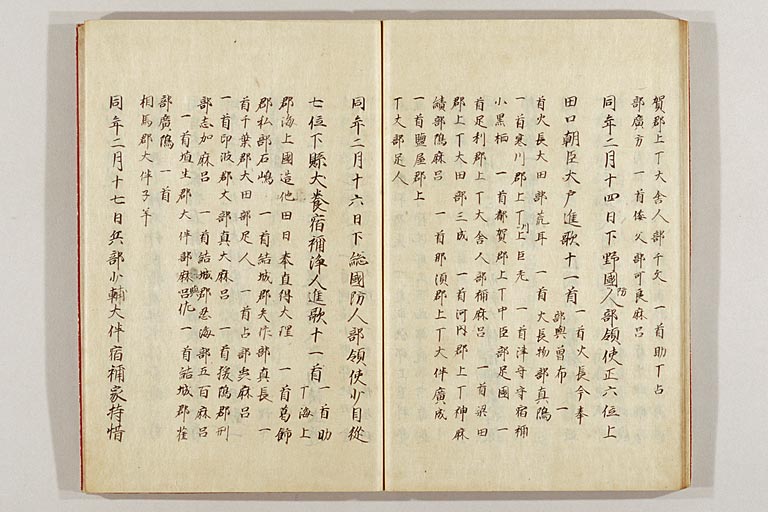 賀郡上丁大舎人部千文 一首助丁占
部廣方 一首倭父部可良麻呂
同年二月十四日下野國防人部領使正六位上
田口朝臣大戸進歌十一首 一首火長今奉
部與曽布 一
首火長大田部荒耳 一首火長物部真嶋
一首寒川郡上丁川上巨老 一首津守宿祢
小黒栖 一首都賀郡上丁中臣部足國 一
首足利郡上丁大舎人部祢麻呂 一首梁田
郡上丁大田部三成 一首河内郡上丁神麻
續部嶋麻呂 一首那須郡上丁大伴廣成
一首塩屋郡上
丁丈部足人
同年二月十六日下総國防人部領使少目従
七位下縣犬養宿祢浄人進歌十一首 一首助
丁海上
郡海上國造他田日奉直得大理 一首葛餝
郡私部石嶋 一首結城郡矢作部真長 一
首千葉郡大田部足人 一首占部虫麻呂
一首印波郡丈部直大麻呂 一首猨嶋郡刑
部志加麻呂 一首結城郡忍海部五百麻呂
一首埴生郡大伴部麻与佐 一首結城郡雀
部廣嶋 一首
相馬郡大伴子羊
同年二月十七日兵部少輔大伴宿祢家持惜